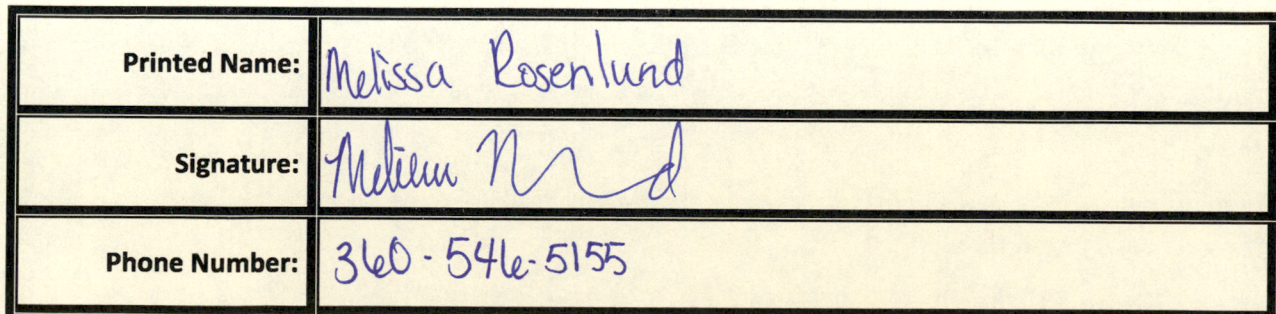 Printed Name: Melissa Rosenlund
Signature: Melissa
Phone Number: 360-546-5155